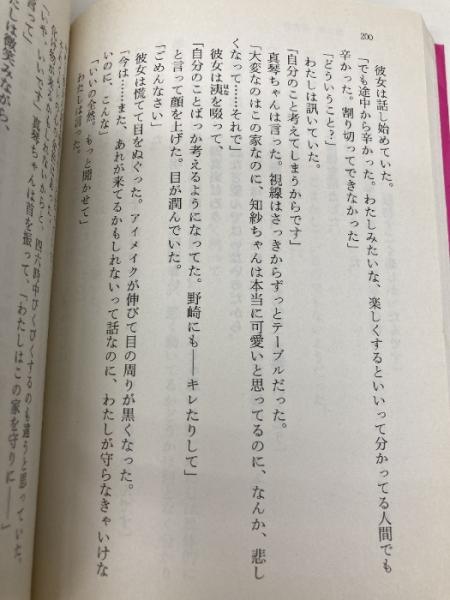 200
彼女は話し始めていた。
「でも途中から辛かった。わたしみたいな、楽しくするといいって分かってる人間でも
辛かった。割り切ってできなかった」
「どういうこと?」
わたしは訊いていた。
「自分のこと考えてしまうからです」
真琴ちゃんは言った。視線はさっきからずっとテーブルだった。
「大変なのはこの家なのに、知紗ちゃんは本当に可愛いと思ってるのに、なんか、悲し
くなって……それで」
彼女は洟を啜って、
「自分のことばっか考えるようになってた。野崎にも――キレたりして」
と言って顔を上げた。目が潤んでいた。
「ごめんなさい」
彼女は慌てて目をぬぐった。アイメイクが伸びて目の周りが黒くなった。
「今は……また、あれが来てるかもしれないって話なのに、わたしが守らなきゃいけな
いのに、こんな」
「いいの全然。もっと聞かせて」
わたしは言った。
四六時中びくびくするのも違うと思っていた。
「いや、いいです」真琴ちゃんは首を振って、「わたしはこの家を守りに――」
わたしは微笑みながら、